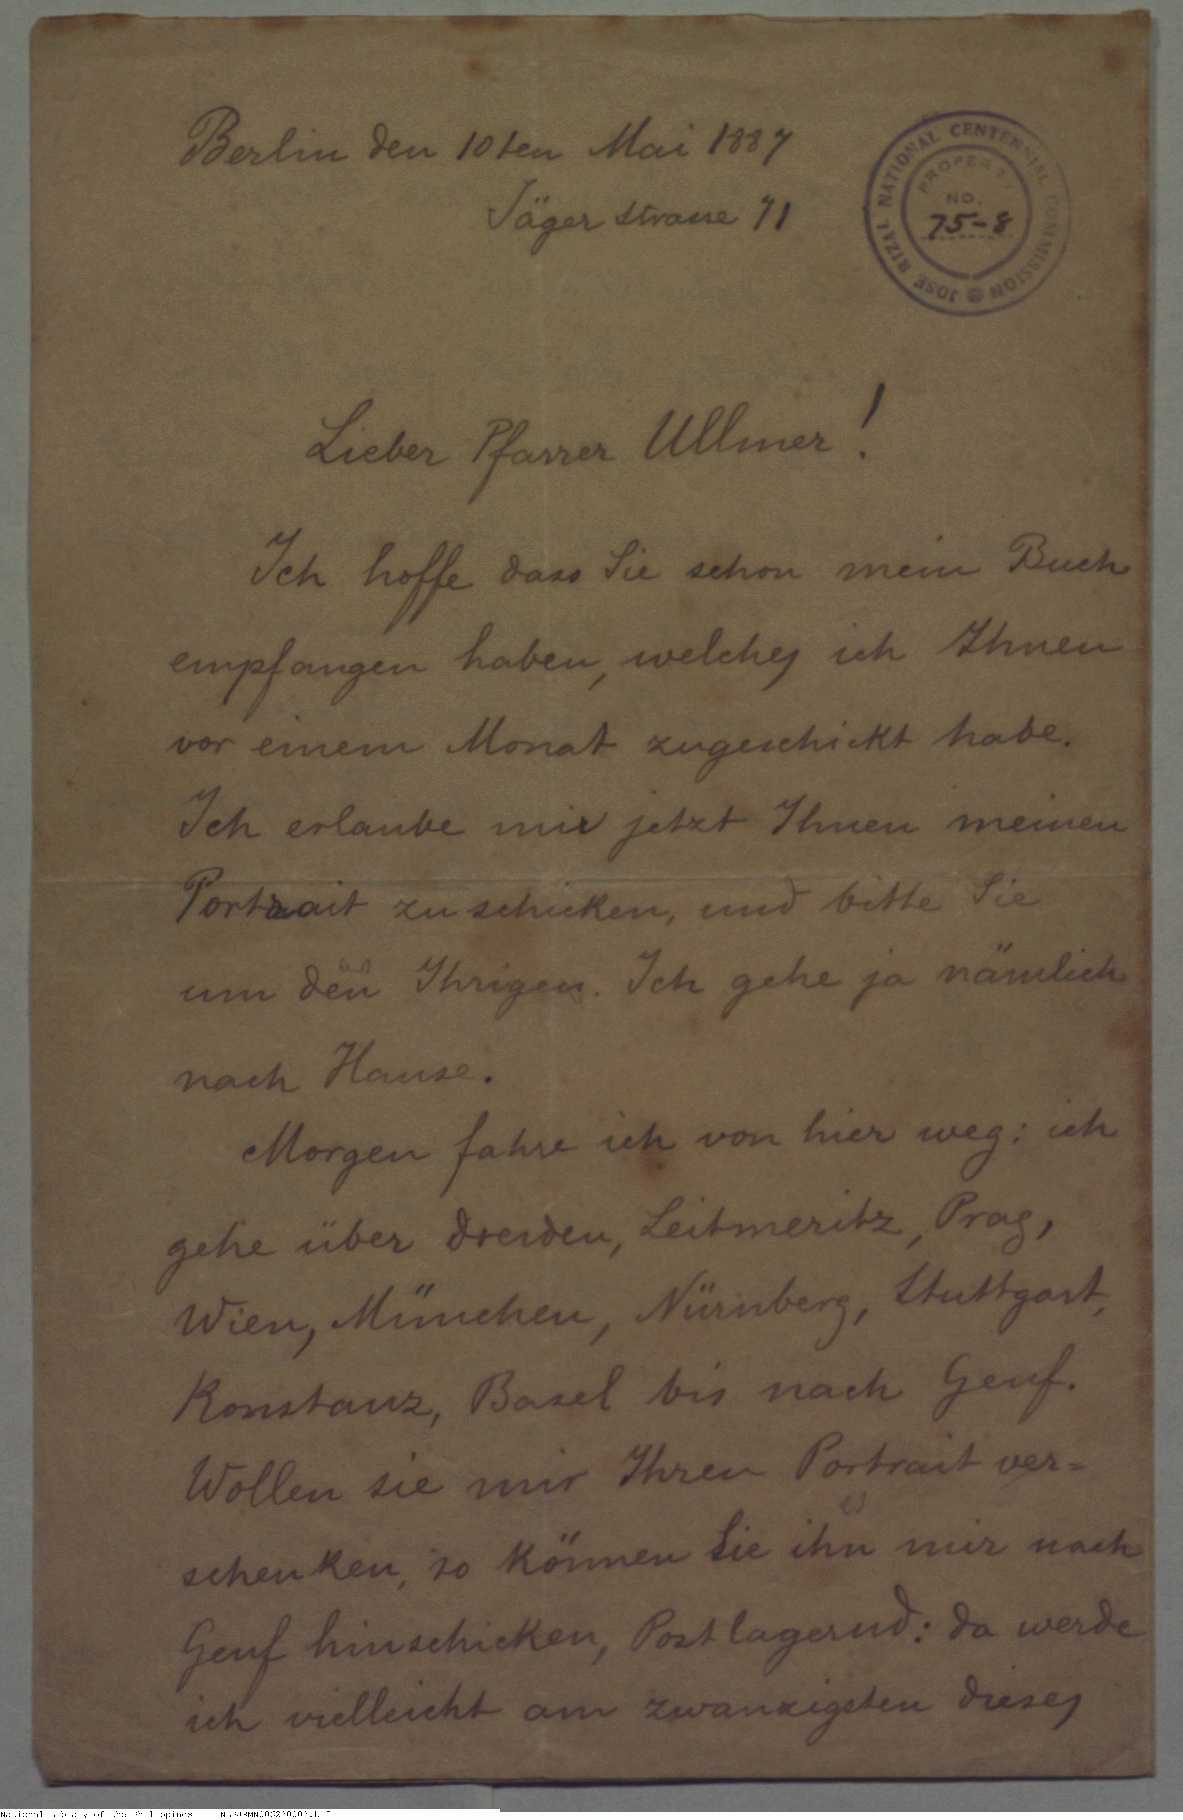 Berlin den 10ten Mai 1887
Jäger strasse 71
JOSE RIZAL NATIONAL CENTENNIAL COMMISSION
PROPERTY
NO.
75-8
Lieber Pfarrer Ullmer!
Ich hoffe dass Sie schon mein Buch
empfangen haben, welches ich Ihnen
vor einem Monat zugeschickt habe.
Ich erlaube mir jetzt Ihnen meinen
Portrait zu schicken, und bitte Sie
um den Ihrigen. Ich gehe ja nämlich
nach Hause.
Morgen fahre ich von hier weg: ich
gehe über Dresden, Leitmeritz, Prag,
Wien, München, Nürnberg, Stuttgart,
Konstanz, Basel bis nach Genf.
Wollen sie mir Ihren Portrait ver=
schenken, so können Sie ihn mir nach
Genf hinschicken, Postlagernd: da werde
ich vielleicht am zwanzigsten dieses
National Library of the Philippines